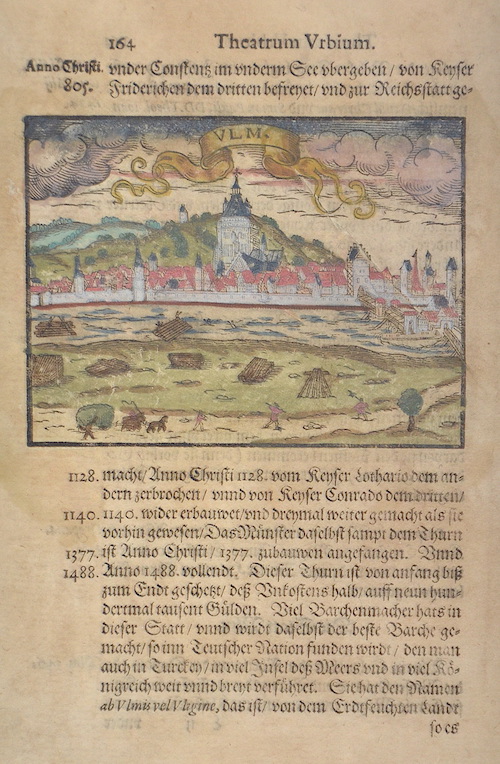 164 Theatrum Vrbium.
Anno Christi vnder Constentz im vnderm See vbergeben / von Keyser
805. Friderichen dem dritten befreyet / vnd zur Reichsstatt ge-
VLM.
1128. macht / Anno Christi 1128. vom Keyser Lothario dem an-
dern zerbrochen / vnnd von Keyser Conrado dem dritten /
1140. 1140. wider erbauwet / vnd dreymal weiter gemacht als sie
vorhin gewesen / Das Münster daselbst sampt dem Thurn
1377. ist Anno Christi / 1377. zubauwen angefangen. Vnnd
1488. Anno 1488. vollendt. Dieser Thurn ist von anfang biß
zum Endt geschetzt / deß Vnkostens halb / auff neun hun-
dertmal tausent Gülden. Viel Barchenmacher hats in
dieser Statt / vnnd wirdt daselbst der beste Barche ge-
macht / so inn Teutscher Nation funden wirdt / den man
auch in Turckey / in viel Insel deß Meers vnd in viel Kö-
nigreich weit vnnd breyt verführet. Sie hat den Namen
ab Vlmis vel Vligine, das ist / von dem Erdtfeuchten Landt
so es